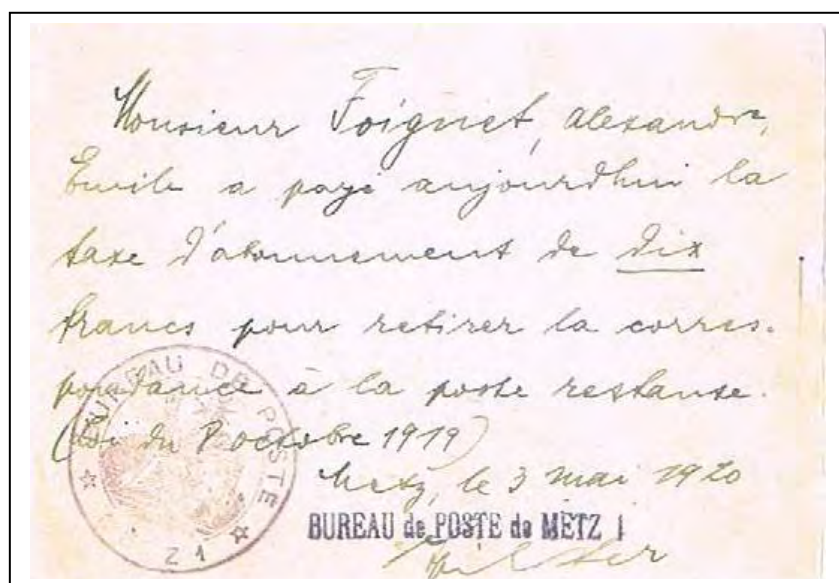 Monsieur Foignet, Alexandre,
Emile a payé aujourdhui la
taxe d'abonnement de dix
francs pour retirer la corres-
pondance à la poste restante.
(Loi du 8 octobre 1919)
Metz, le 3 mai 1920
BUREAU de POSTE de METZ 1
BUREAU DE POSTE
Z 1